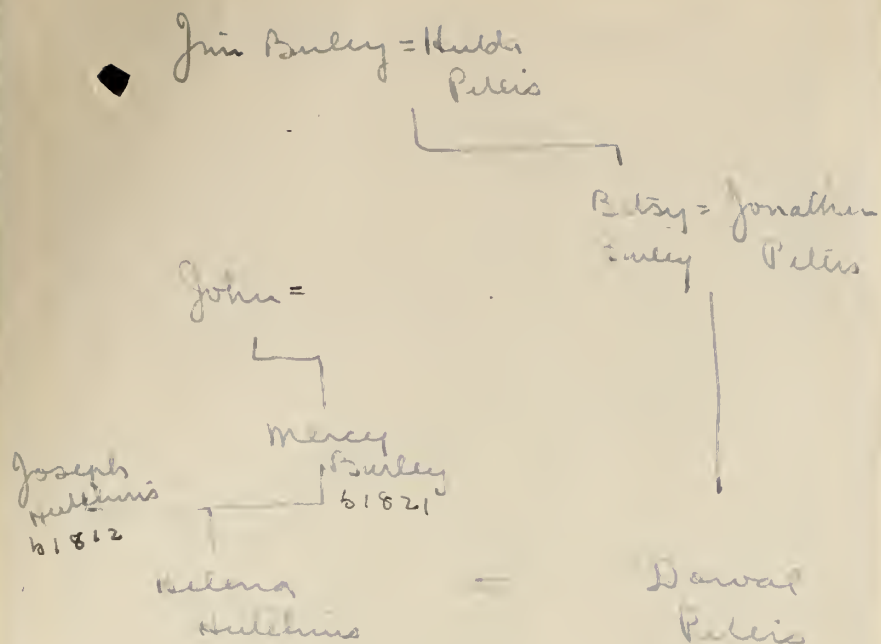 Jim Burley = Hulda
Peters
Betsy = Jonathan
Burley Peters
John =
Mercy
Burley
b1821
Joseph
Hutchins
b1812
Hutchins
Peters